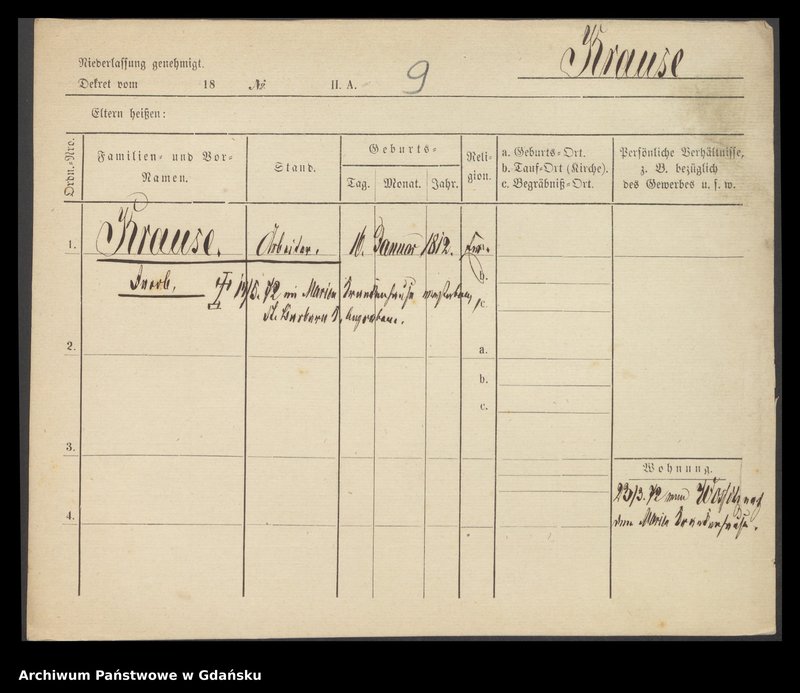 Krause
Niederlassung genehmigt.
Dekret vom 18 No II. A. 9
Eltern heißen:
Ordn.-Nro.
Familien- und Vor-
Namen.
Stand.
Geburts-
Tag. Monat. Jahr.
Reli-
gion.
a. Geburts-Ort.
b. Tauf-Ort (Kirche).
c. Begräbniß-Ort.
Persönliche Verhältnisse,
z. B. bezüglich
des Gewerbes u. s. w.
1. Krause. Arbeiter. 16. Januar 1812.
b.
Jacob. 19/5. 72 im Marien Krankenhause verstorben,
c.
St. Barbara begraben.
2. a.
b.
c.
3.
Wohnung.
23/3. 72 nach
dem Marien Krankenhause.
4.
Archiwum Państwowe w Gdańsku